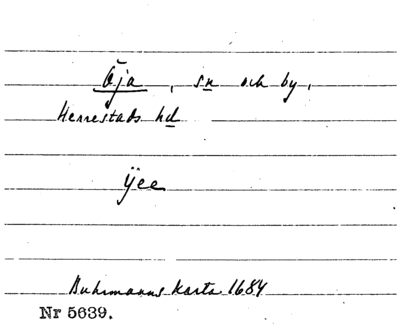 Öja, sn och by,
Herrestads hd
ÿee
Buhrmanns karta 1684
Nr 5639.